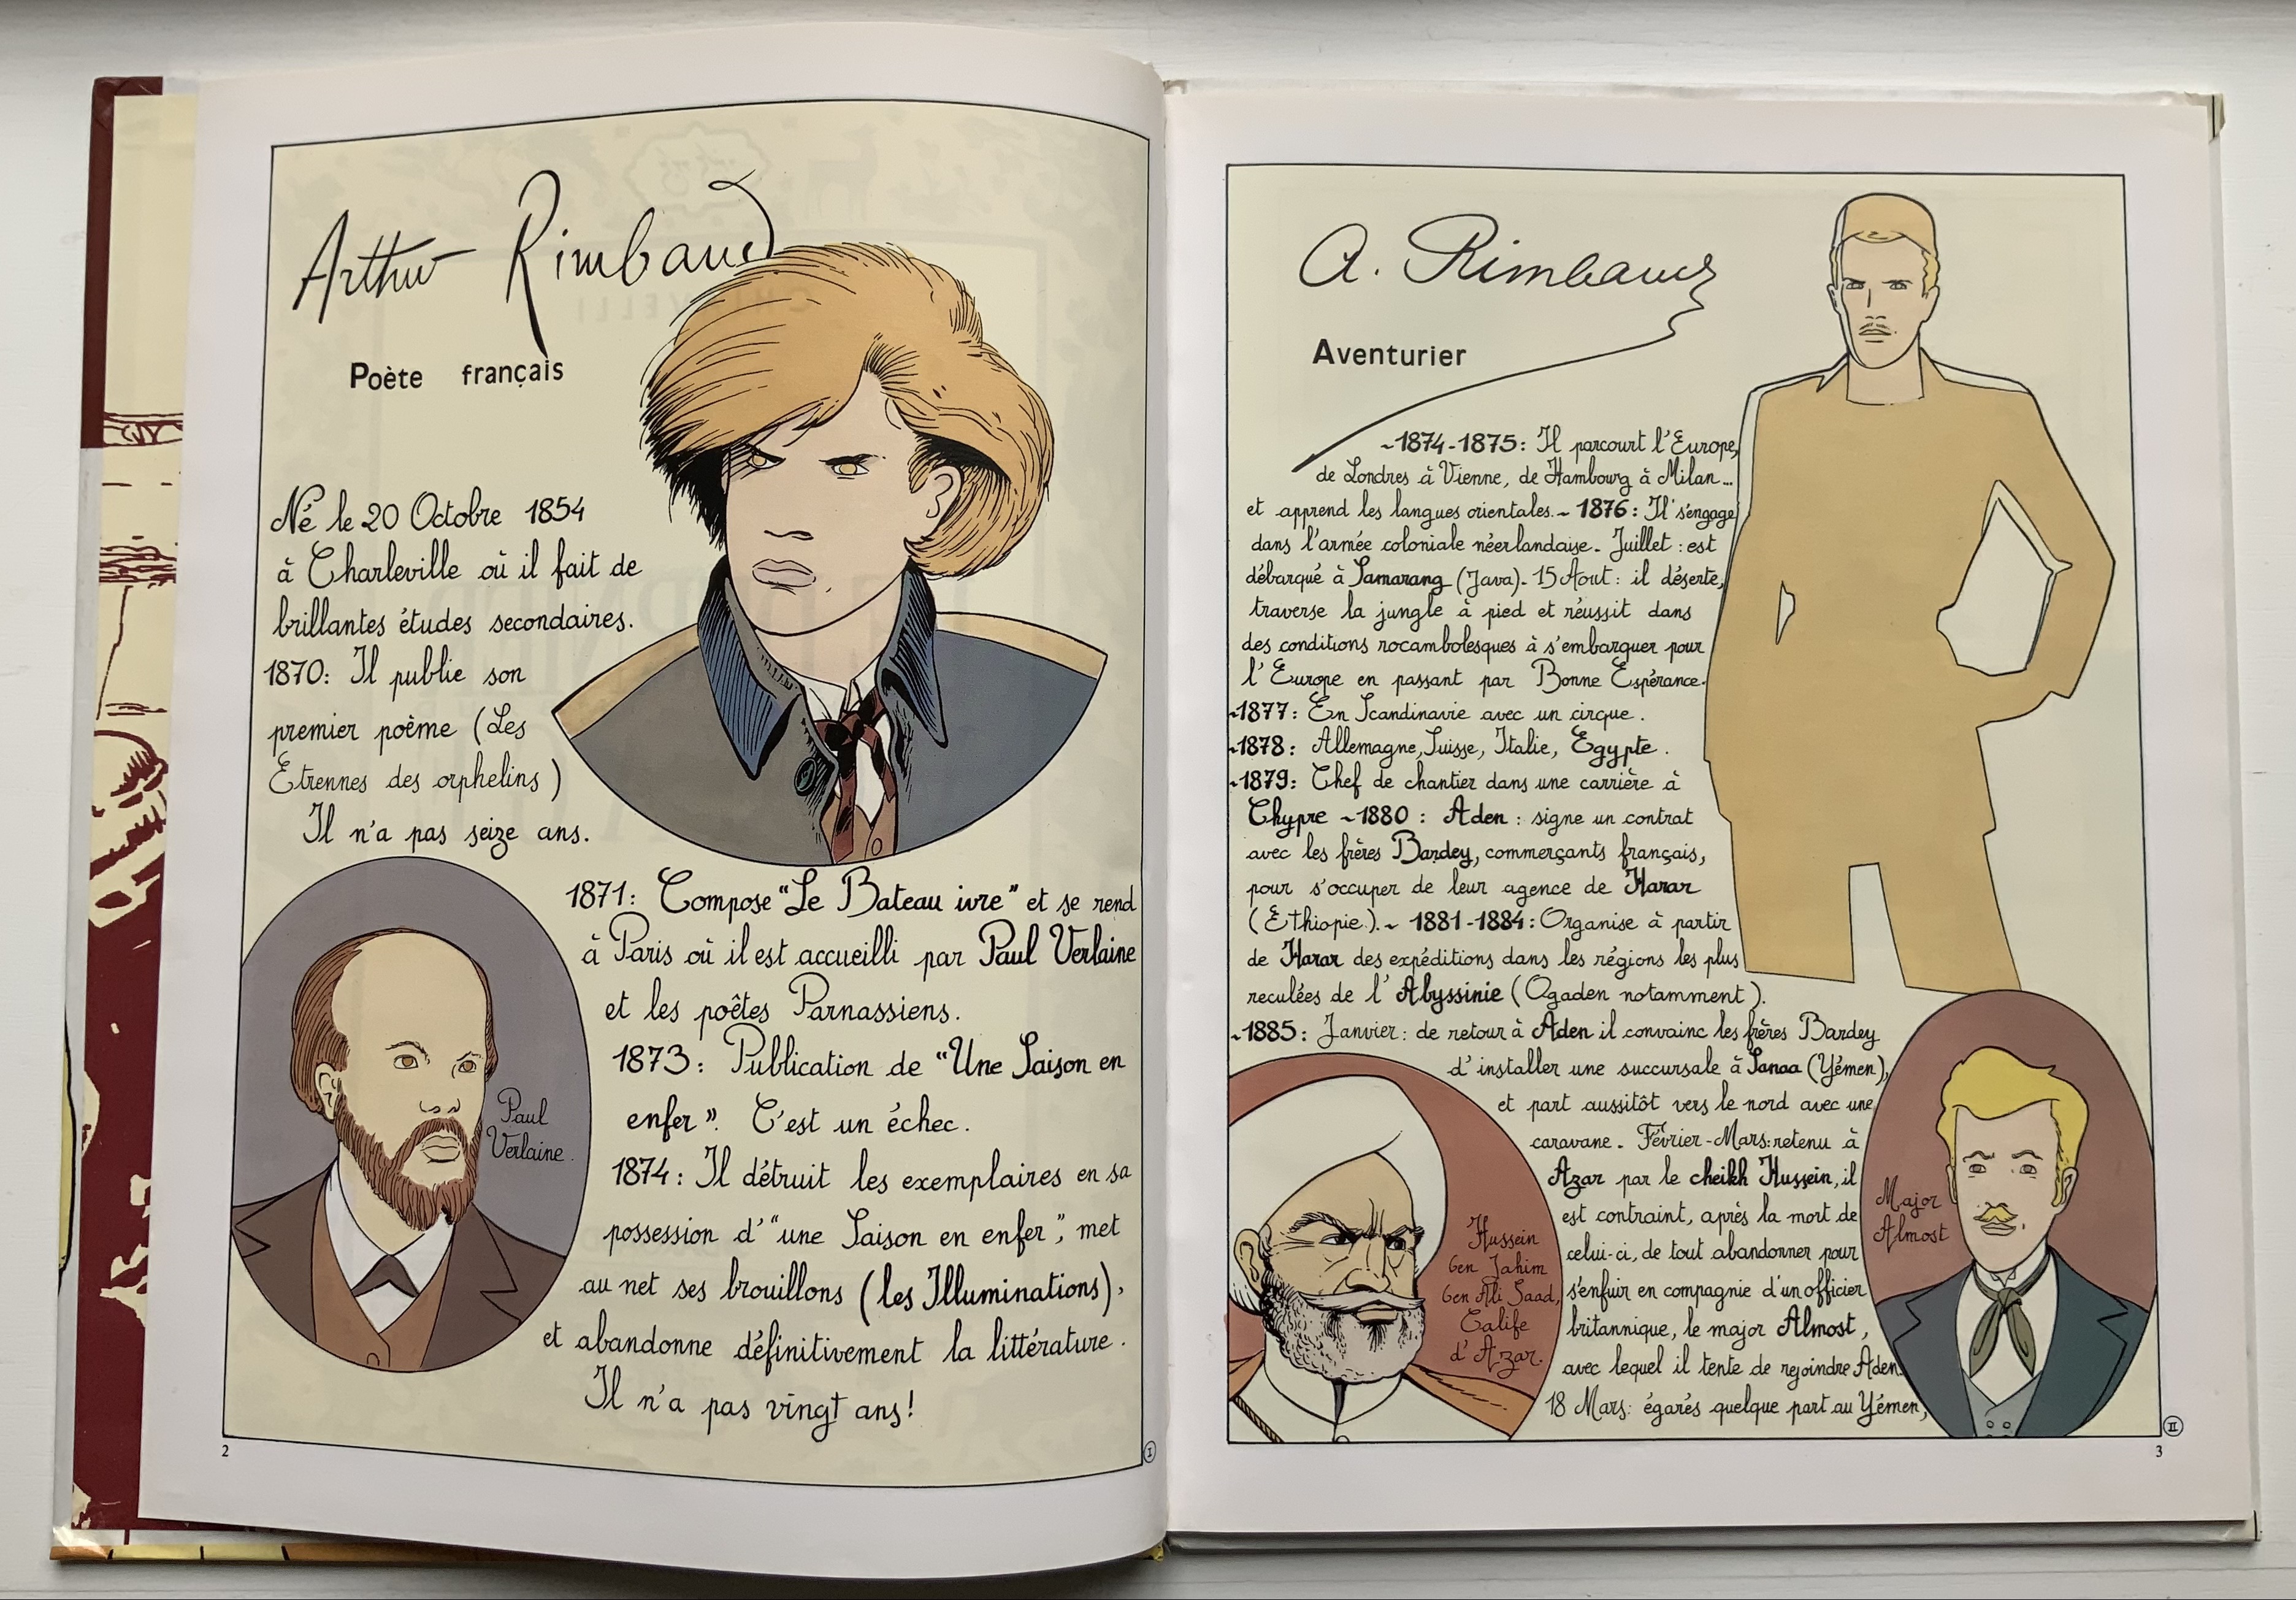 Arthur Rimbaud
Poète français
Né le 20 Octobre 1854
à Charleville où il fait de
brillantes études secondaires.
1870: Il publie son
premier poème (Les
Etrennes des orphelins)
Il n'a pas seize ans.
1871: Compose "Le Bateau ivre" et se rend
à Paris où il est accueilli par Paul Verlaine
et les poêtes Parnassiens.
1873: Publication de "Une Saison en
enfer". C'est un échec.
1874: Il détruit les exemplaires en sa
possession d'"une Saison en enfer", met
au net ses brouillons (les Illuminations),
et abandonne définitivement la littérature.
Il n'a pas vingt ans!
Paul
Verlaine.
2
I
A. Rimbaud
Aventurier
~1874-1875: Il parcourt l'Europe,
de Londres à Vienne, de Hambourg à Milan...
et apprend les langues orientales.~ 1876: Il s'engage
dans l'armée coloniale néerlandaise. Juillet: est
débarqué à Samarang (Java). 15 Aout: il déserte,
traverse la jungle à pied et réussit dans
des conditions rocambolesques à s'embarquer pour
l'Europe en passant par Bonne Espérance.
~1877: En Scandinavie avec un cirque.
~1878: Allemagne, Suisse, Italie, Egypte.
~1879: Chef de chantier dans une carrière à
Chypre ~1880: Aden: signe un contrat
avec les frères Bardey, commerçants français,
pour s'occuper de leur agence de Harar
(Ethiopie).~ 1881-1884: Organise à partir
de Harar des expéditions dans les régions les plus
reculées de l'Abyssinie (Ogaden notamment).
~1885: Janvier: de retour à Aden il convainc les frères Bardey
d'installer une succursale à Sanaa (Yémen),
et part aussitôt vers le nord avec une
caravane. Février-Mars: retenu à
Azar par le cheikh Hussein, il
est contraint, après la mort de
celui-ci, de tout abandonner pour
s'enfuir en compagnie d'un officier
britannique, le major Almost,
avec lequel il tente de rejoindre Aden.
18 Mars: égarés quelque part au Yémen,
Hussein
ben Jahim
ben Ali Saad,
Calife
d'Azar.
Major
Almost
II
3